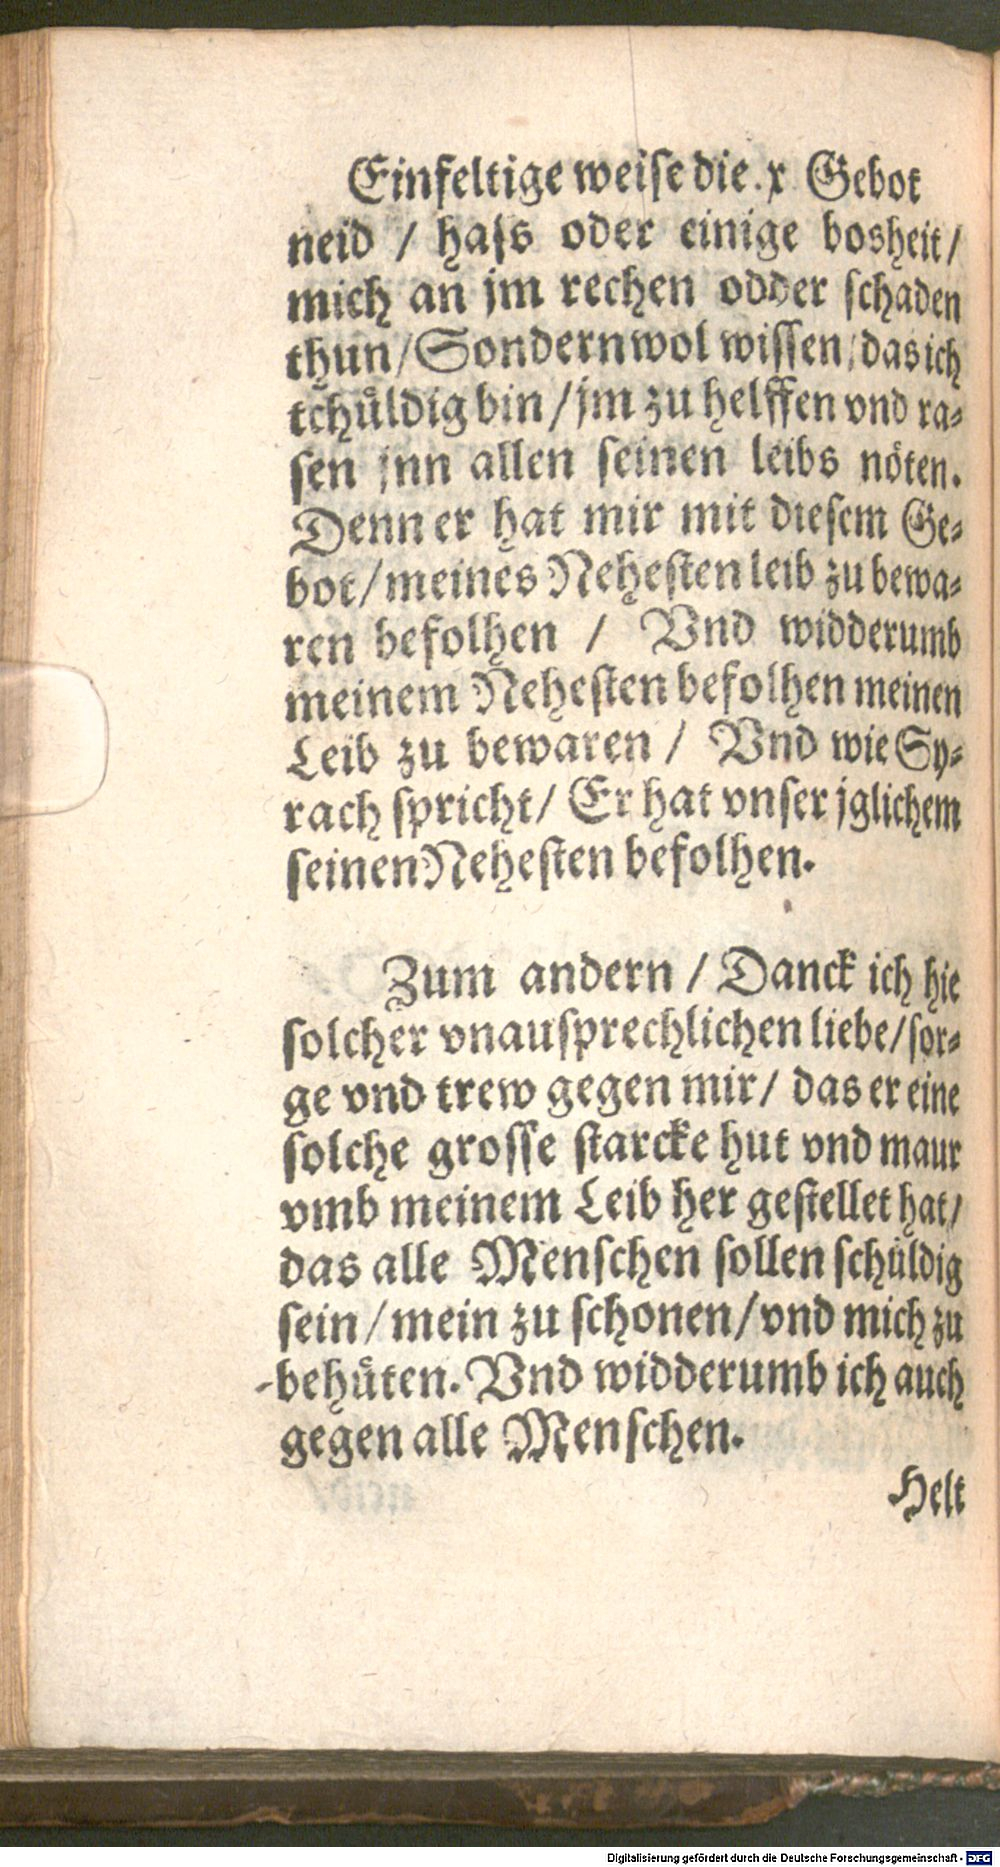 Einfeltige weise die .x Gebot
neid / haſs oder einige bosheit /
mich an jm rechen odder ſchaden
thun / Sondern wol wiſſen / das ich
tchuͤldig bin / jm zu helffen vnd ra⸗
ſen jnn allen ſeinen leibs noͤten.
Denn er hat mir mit dieſem Ge⸗
bot / meines Neheſten leib zu bewa⸗
ren befolhen / Vnd widderumb
meinem Neheſten befolhen meinen
Leib zu bewaren / Vnd wie Sy⸗
rach ſpricht / Er hat vnſer jglichem
ſeinen Neheſten befolhen.
Zum andern / Danck ich hie
ſolcher vnauſprechlichen liebe / ſor⸗
ge vnd trew gegen mir / das er eine
ſolche groſſe ſtarcke hut vnd maur
vmb meinem Leib her geſtellet hat /
das alle Menſchen ſollen ſchuͤldig
ſein / mein zu ſchonen / vnd mich zu
behuͤten. Vnd widderumb ich auch
gegen alle Menſchen.
Helt
Digitalisierung gefördert durch die Deutsche Forschungsgemeinschaft - DFG